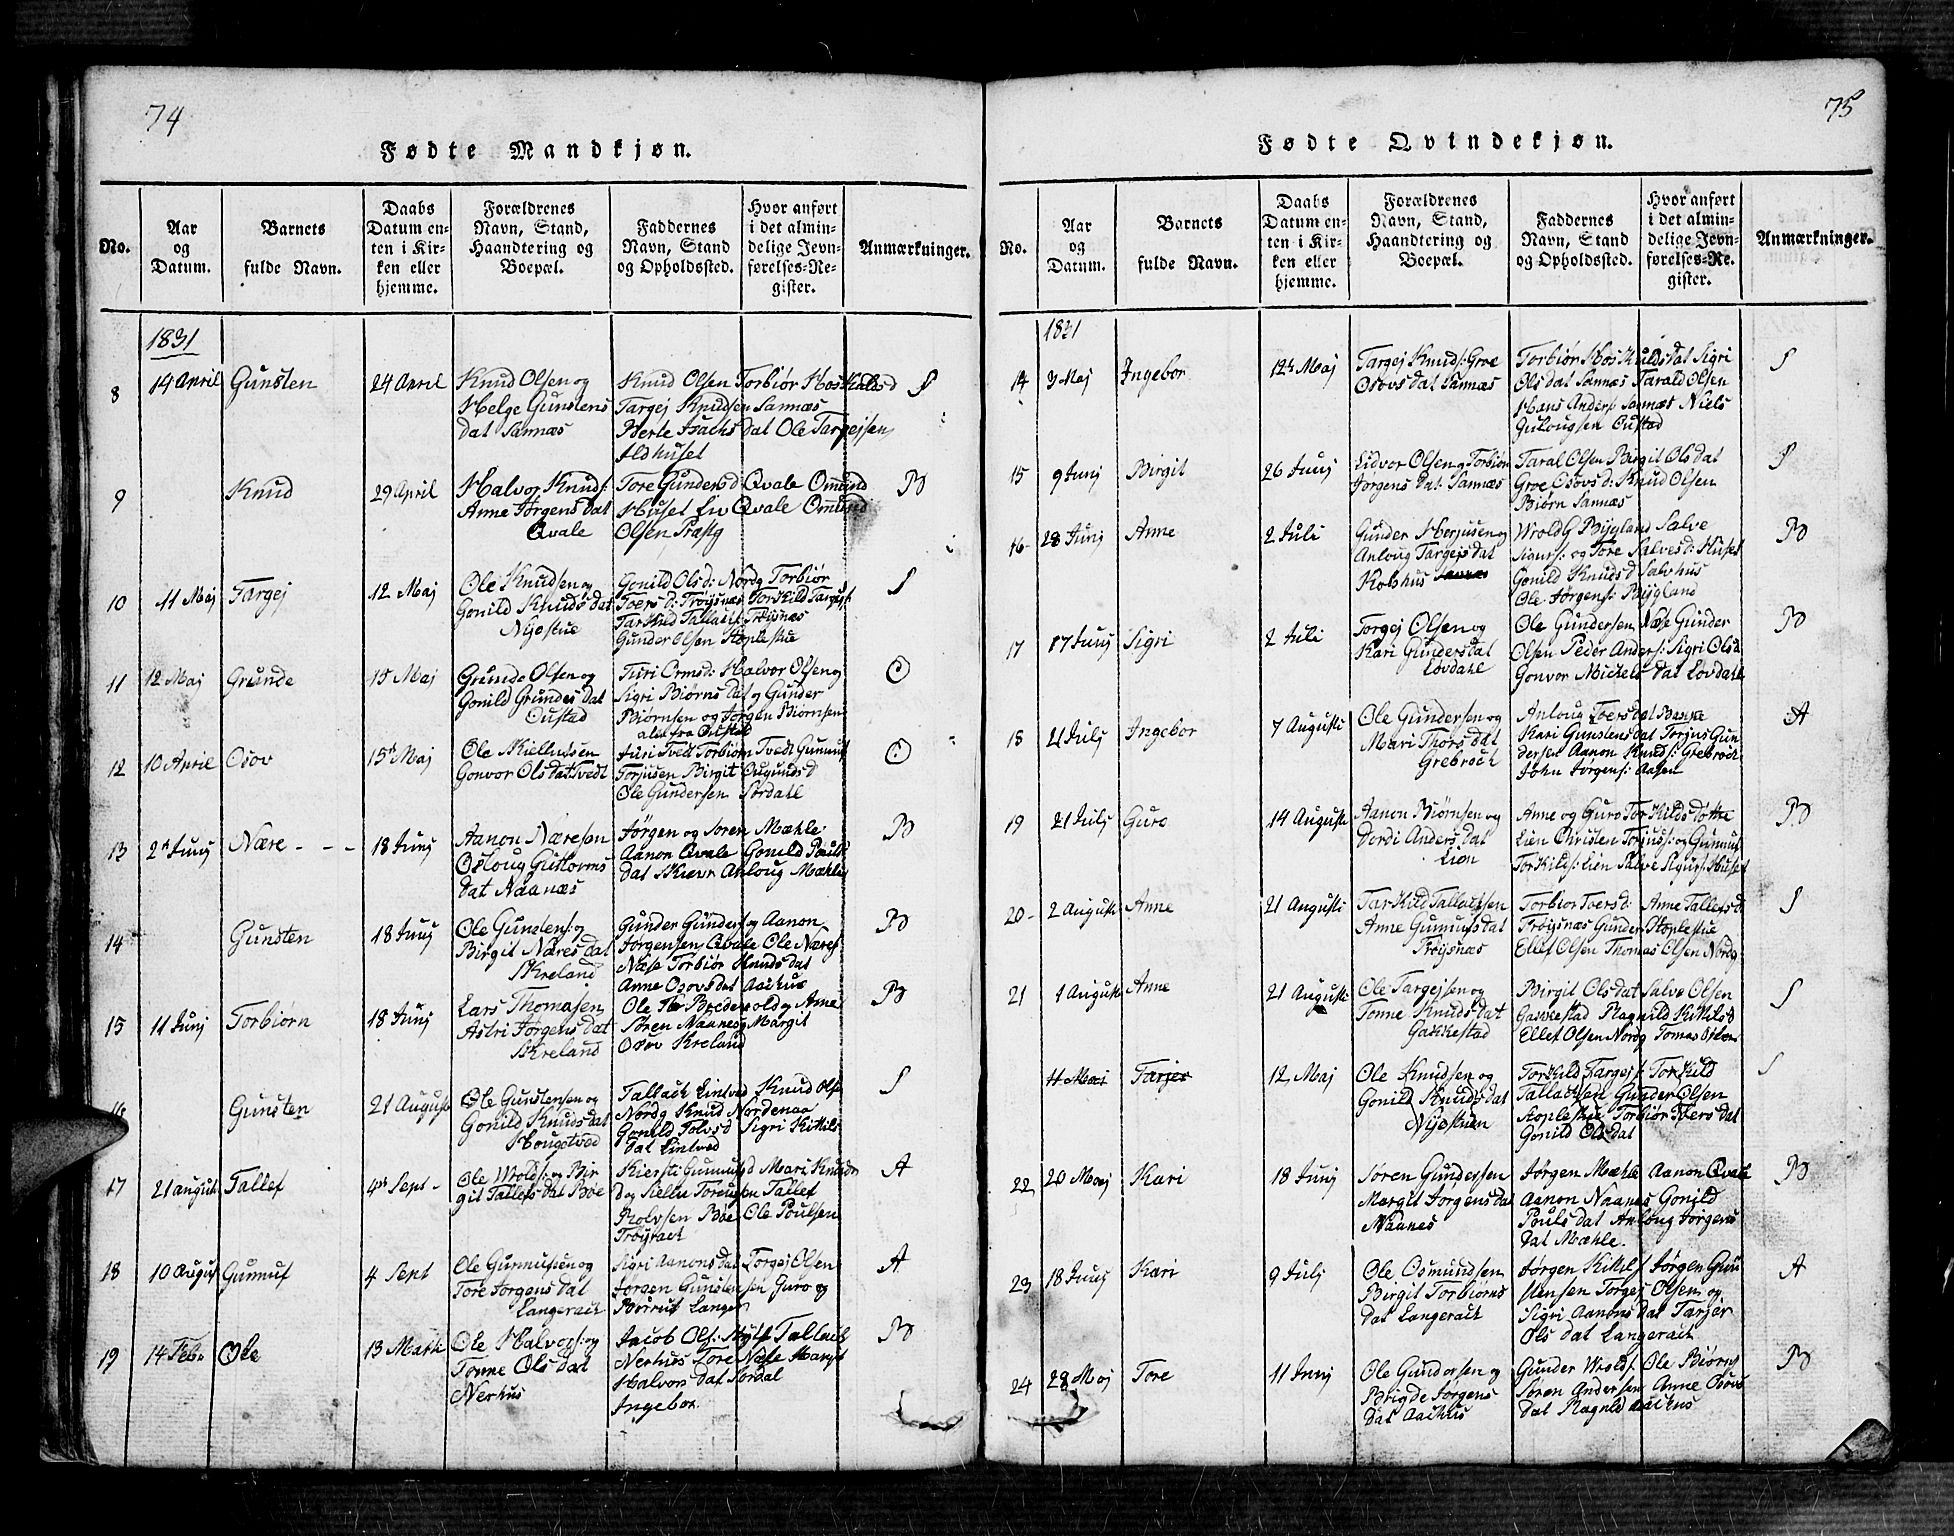 74
Fødte Mandkjøn.
No.
Aar
og
Datum.
Barnets
fulde Navn.
Daabs
Datum en-
ten i Kir-
ken eller
hjemme.
Forældrenes
Navn, Stand,
Haandtering og
Boepæl.
Faddernes
Navn, Stand
og Opholdssted.
Hvor anført
i det almin-
delige Jevn-
førelses-Re-
gister.
Anmærkninger.
1831
8 14 April Gunsten 24 April
Knud Olsen og
Helge Gunstens
dat Sannæs
Knud Olsen Torbiør
Targej Knudsen Sannæs
dat Ole Targejsen
Ildhuset
S
9 Knud 29 April
Halvor Knuds:
Anne Jørgens dat
Qvale
Tore Gundersd Qvale Omund
Huset Liv Qvale Omund
Olsen Præstg
B
10 11 Maj Targej 12 Maj
Ole Knudsen og
Gonild Knuds dat
Nijestue
Gonild Olsd: Nordg Torbiør
Toers d: Frøijsnæs Torkild Targejs:
Frøijsnæs
Gunder Olsen Hoplestue
S
11 12 Maj Grunde 15 Maj
Grunde Olsen og
Gonild Grundes dat
Oustad
Turi Ormsd: Halvor Olsen og
Sigri Biørns dat og Gunder
Biørnsen og Jørgen Biørnsen
alle fra Oustad
O
12 10 April Osov 15 Maj
Ole Kiellussen
Gonvor Ols dat Tvedt
Juri Tvedt Torbiørn Tvedt Gunnuf
Torjusen Birgit Ougunds d
Ole Gundersen Sordahl
O
13 2 Junj Nære - - - 18 Junj
Aanon Næresen
Osloug Guttorms
dat Naanæs
Jørgen og Soren Mæhle
Aanon Qvale Gonild Pouls
dat Skievr Anloug Mæhle
B
14 Gunsten 18 Junj
Ole Gunstens: og
Birgit Næres dat
Skreland
Gunder Gunders og Aanon
Jørgensen Qvale Ole Næres
Næse Torbiør Knuds dat
Anne Osovs dat Aachus
B
15 11 Junj Torbiørn 18 Junj
Lars Thomasen
Astri Jørgens dat
Skreland
Søren Naanes og Margit
Osov Kreland
B
16 Gunsten 21 August
Ole Gunstensen og
Gonild Knuds dat
Hougetved
Tallack Lintved Knud Ols
Nordg Knud Nordenaa
Gonild Tolvsd Sigri Kittils
dat Lintved
S
17 21 august Tallef 4 Sept -
Ole Wrolds: og Bir
git Tallefs dat Bøe
Kiersti Gunnufs d Mari Knuds
d og Siellu Toreusen Tallef
Rolvsen Bøe Ole Poulsen
Trøijract
A
18 10 August Gunnuf 4 Sept
Ole Gunnufsen og
Tore Jørgens dat
Langeract
Sigri Aanons dat Torgej Olsen
Jørgen Gunstensen Guro og
Langer
A
19 14 Feb: Ole 13 Mart
Ole Halvors: og
Tonne Ols dat
Nerhus
Jacob Ols: Tallack
Nerhus Tore Næse Margit
Halvors dat Sordal
Ingebor
B
75
Fødte Qvindekjøn.
No.
Aar
og
Datum.
Barnets
fulde Navn.
Daabs
Datum en-
ten i Kir-
ken eller
hjemme.
Forældrenes
Navn, Stand,
Haandtering og
Boepæl.
Faddernes
Navn, Stand
og Opholdssted.
Hvor anført
i det almin-
delige Jevn-
førelses-Re-
gister.
Anmærkninger.
1831
14 3 Maj Ingebor 12 Maj
Targej Knuds: Groe
Osovs dat Sannæs
Torbiør Hoskulds dat Sigri
Ols dat Sannæs Tarald Olsen
Hans Anders: Sannæs Niels
Gulougsen Oustad
S
15 9 Junj Birgit 26 Junj
Eidvor Olsen og Torbiør
Jorgens dat: Sannæs
Taral Olsen Birgit Ols dat
Groe Osovs d: Knud Olsen
Biørn Sannæs
S
16 28 Junj Anne 2 Juli
Gunder Herjusen og
Anloug Targejs dat
Kolshus
Wrold G Bijgland Salve
Sigurs: og Tore Salves d: Huset
Gonild Knuds d Salvhus
Ole Jørgens: Bijgland
B
17 17 Junj Sigri 2 Juli
Torgej Olsen og
Kari Gunders dat
Lovdahl
Ole Gundersen Næse Gunder
Olsen Peder Anders: Sigri Olsd
Gonvor Michels dat Lovdahl
B
18 21 Julj Ingebor 7 Augusti
Ole Gundersen og
Mari Thors dat
Grebroch
Anloug Toers dat
Kari Gunstens dat Torjus Gun
dersen Aanon Knuds: Grebroch
John Jørgens: Aasen
A
19 21 Julj Guro 14 Augusti
Aanon Biørnsen og
Dordi Anders dat
Lien
Anne og Guro Torkilds døtte
Lien Christen Torjus: og Gunnuf
Torkilds: Lien Salve Sigurs: Huset
B
20 2 Augusti Anne 21 Augusti
Tarkild Tallacsen
Anne Gunnufs dat
Frøijsnæs
Torbior Toers d: Anne Tallefs d
Frøijsnæs Gunder Hoplestue
Ellef Olsen Thomas Olsen Nordg
S
21 1 August Anne 21 Augusti
Ole Targejsen og
Tonne Knuds dat
Gakkestad
Birgit Ols dat Salve Olsen
Gakkestad Ragnild Kittils d
Ellef Olsen Nordg Tomas Olsen
S
11 Mai Tarjer 12 Maj
Ole Knudsen og
Gonild Knuds dat
Nijestuen
Torkild Targejs: Torkild
Tallacsen Gunder Olsen
Hoplestue Torbiør Toers dat
Gonild Ols dat
S
22 20 Maj Kari 18 Junj
Søren Gundersen
Margit Jorgens dat
Naanes
Jørgen Mæhle Aanon Qvale
Aanon Naanes Gonild
Pouls dat Anloug Jørgens
dat Mæhle.
B
23 18 Junj Kari 9 Julj
Ole Osmundsen
Birgit Torbiørns
dat Langeract
Jørgen Kittils Jørgen Gun
stensen Torgej Olsen og
Sigri Aanons dat Tarjer
Ols dat Langeract
A
24 28 Maj Tore 11 Junj
Ole Gundersen og
Brigde Jorgens
dat Aachus
Gunder Wrolds: Ole Biørns
Søren Andersen Anne Osovs
dat Ragnild Aachus
B